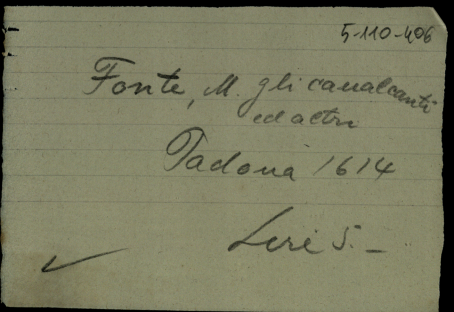 5-110-406
Fonte, M. gli cavalcanti
ed altri
Padova 1614
Lire 5.-